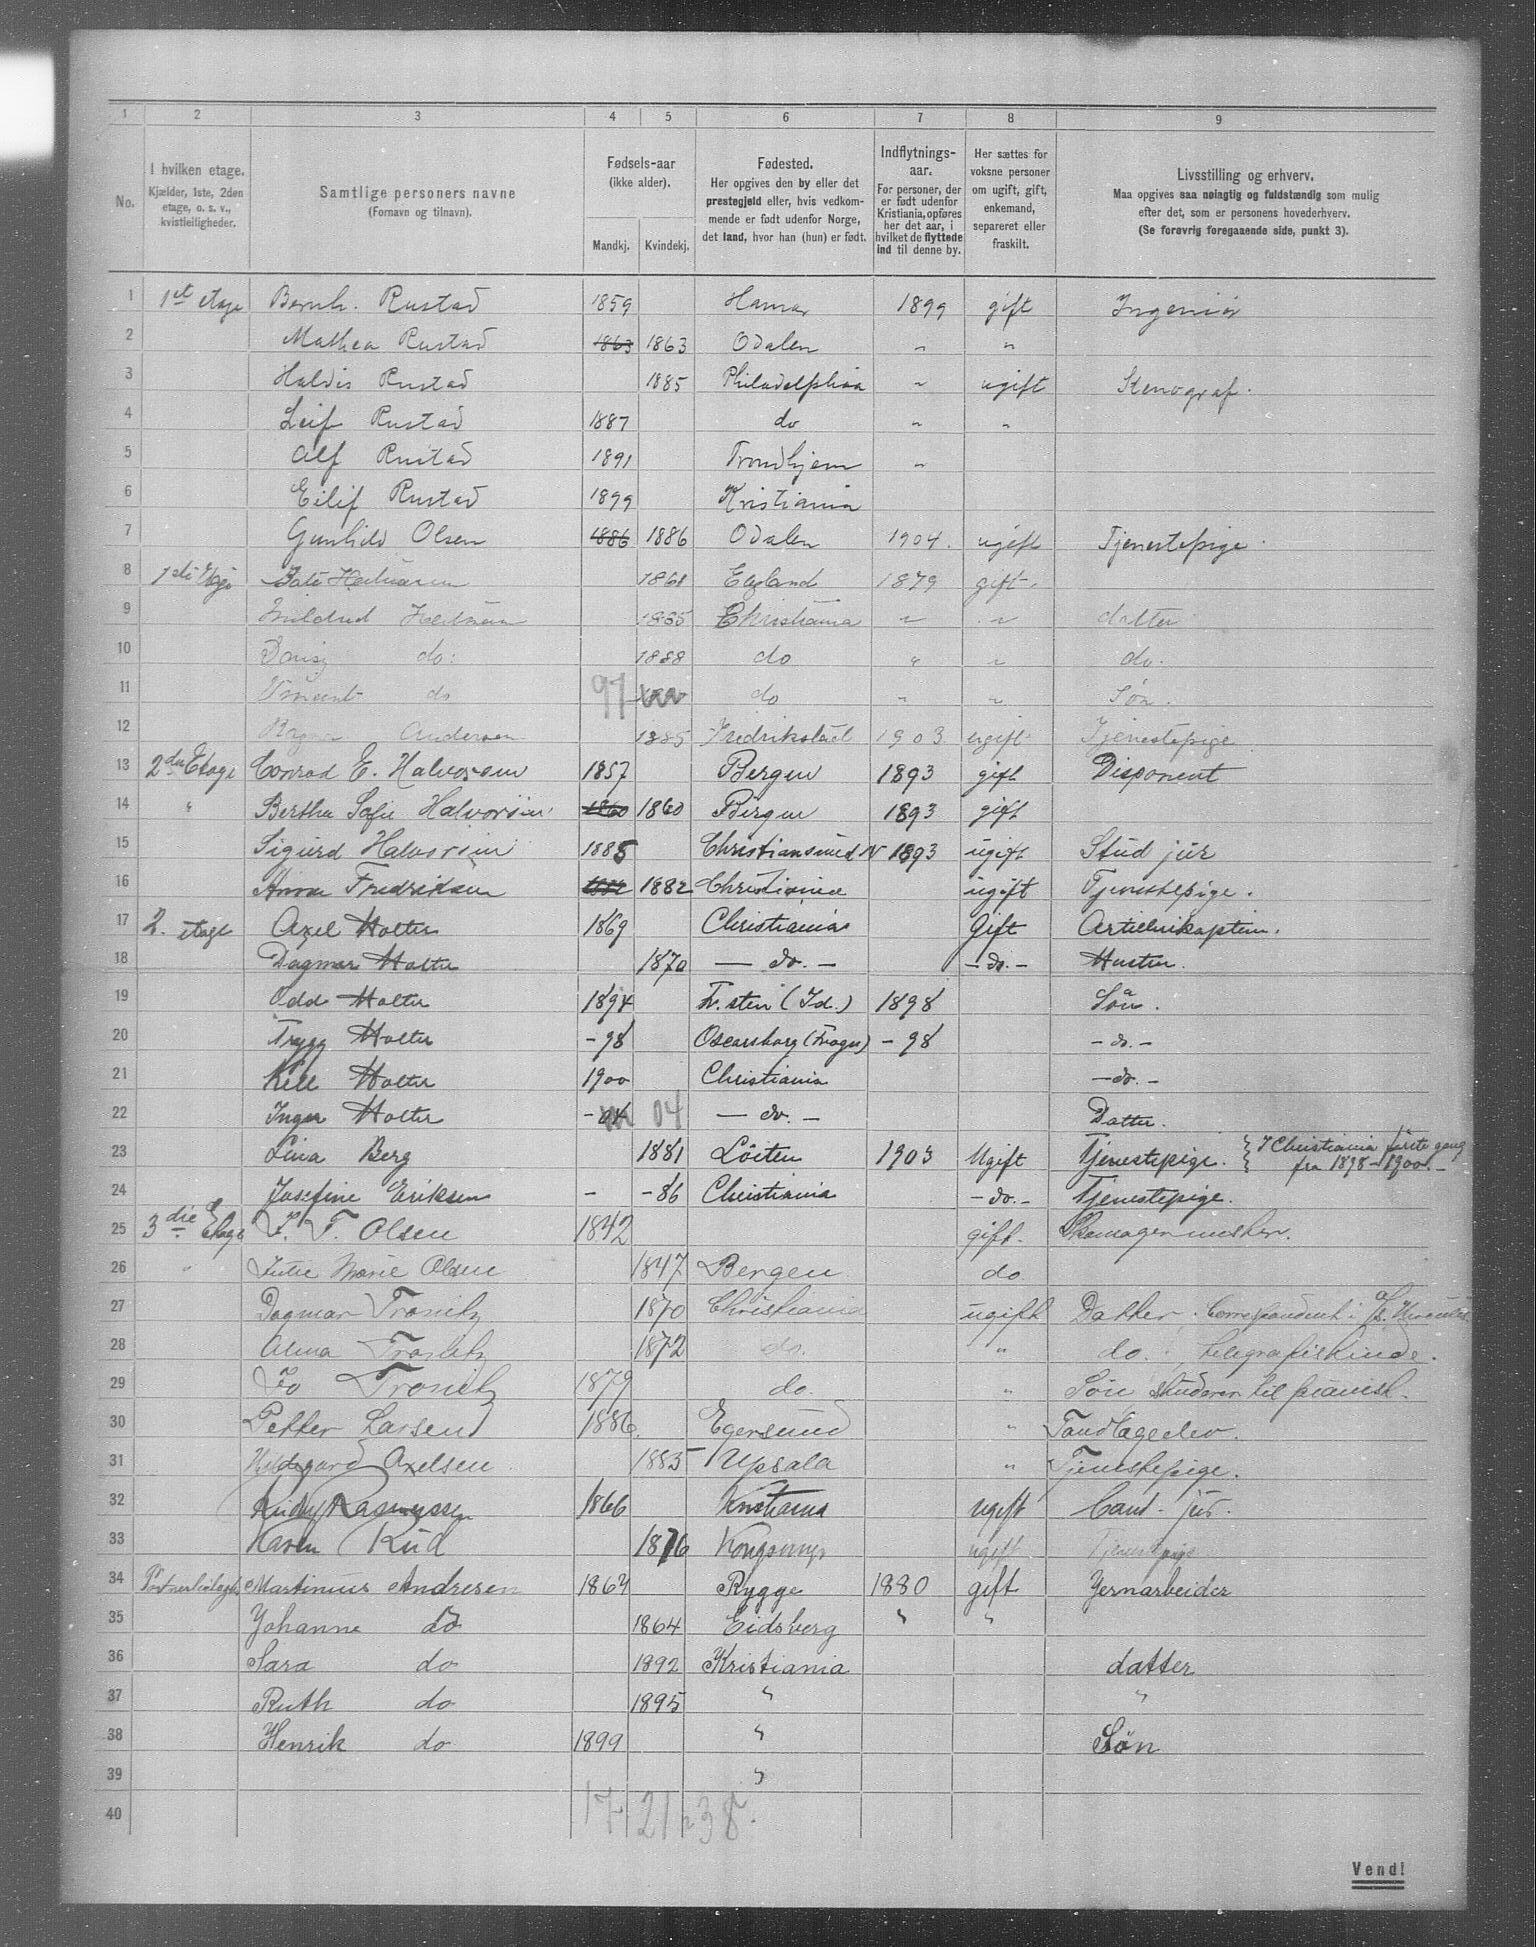 1 2 3 4 5 6 7 8 9
No.
I hvilken etage.
Kjælder, 1ste, 2den
etage, o. s. v.,
kvistleiligheder.
Samtlige personers navne
(Fornavn og tilnavn).
Fødsels-aar
(ikke alder).
Mandkj. Kvindekj.
Fødested.
Her opgives den by eller det
prestegjeld eller, hvis vedkom-
mende er født udenfor Norge,
det land, hvor han (hun) er født.
Indflytnings-
aar.
For personer, der
er født udenfor
Kristiania, opføres
her det aar, i
hvilket de flyttede
ind til denne by.
Her sættes for
voksne personer
om ugift, gift,
enkemand,
separeret eller
fraskilt.
Livsstilling og erhverv.
Maa opgives saa nøiagtig og fuldstændig som mulig
efter det, som er personens hovederhverv.
(Se forøvrig foregaaende side, punkt 3).
1 1st etage Bernh. Rustad 1859 Hamar 1899 gift Ingeniør
2 Mathea Rustad 1863 1863 Odalen " "
3 Haldis Rustad 1885 Philadelphia " ugift Stenograf.
4 Leif Rustad 1887 do " "
5 Alf Rustad 1891 Trondhjem "
6 Eilif Rustad 1899 Kristiania
7 Gunhild Olsen 1886 1886 Odalen 1904. ugift Tjenestepige.
8 1ste Etage 1861 England 1879 gift.
9 Mildred 1885 Christiania " " datter
10 Daisy do: 1888 do " " do.
11 Vincent do 97 do " " Søn.
12 Ragna Andersen 1885 Fredrikstad 1903 ugift Tjenestepige
13 2den Etage Conrad E. Halvorsen 1857 Bergen 1893 gift Disponent
14 " Bertha Sofie Halvorsen 1860 1860 Bergen 1893 gift
15 Sigurd Halvorsen 1885 Christiansund N 1893 ugift Stud jur
16 Anna Fredriksen 1882 1882 Christiania ugift Tjenestepige.
17 2. etage Axel Holter 1869 Christiania Gift Artillerikaptein.
18 Dagmar Holter 1870 — do. — - do. - Hustru.
19 Odd Holter 1894 Fr. sten (Id.) 1898 Søn.
20 Trygg Holter - 98 Oscarsborg (Frogn) - 98 - do. -
21 Kell Holter 1900 Christiania - do. -
22 Inger Holter - 04 04 — do. — Datter.
23 Lina Berg 1881 Løiten 1903 Ugift Tjenestepige. { I Christiania første gang
fra 1898 - 1900. -
24 Josefine Eriksen - - 86 Christiania - do. - Tjenestepige.
25 3die Etage P. T. Olsen 1842 gift. Skomagermester.
26 " Julie Marie Olsen 1847 Bergen do
27 Dagmar Tronitz 1870 Christiania ugift Datter, Correspondent i
28 Alma Tronitz 1872 do. " do., telegrafistinde.
29 Tronitz 1879 do. " Søn, studerer til pianist.
30 Petter Larsen 1886. Egersund " Tandlægeelev.
31 Hildegard Axelsen 1885 Upsala " Tjenestepige.
32 Rasmussen 1866 Kristiania ugift Cand. jur.
33 Karen 1876 ugift Tjenestepige
34 Martinius Andresen 1864 Rygge 1880 gift Jernarbeider
35 Johanne do 1864 Eidsberg " "
36 Sara do 1892 Kristiania datter
37 Ruth do 1895 " "
38 Henrik do 1899 " Søn
39 "
40 17 21 = 38.
Vend!